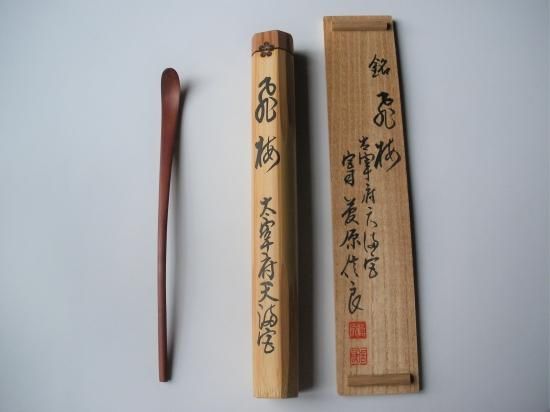 飛梅
太宰府天満宮
銘
飛梅
太宰府天満宮
宮司 菅原信良